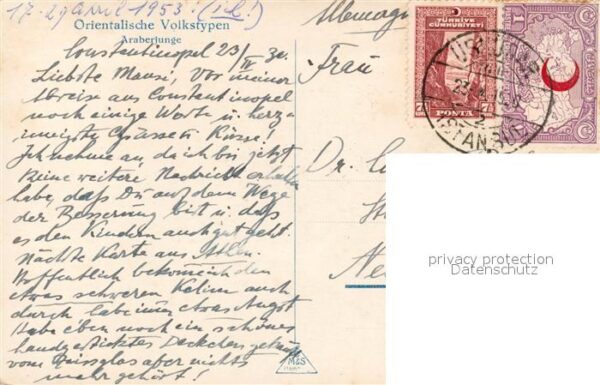 17-29 April 1953! (icl!)
Orientalische Volkstypen
Araberjunge
Constantinopel 23/IV 30.
Liebste Mausi, Vor meiner
Abreise aus Constantinopel
noch einige Worte u. herz-
innigste Grüsse u. Küsse!
Ich nehme an, da ich bis jetzt
keine weitere Nachricht erhalten
habe, daß Du auf dem Wege
der Besserung bist u. daß
es den Kindern auch gut geht.
Nächste Karte aus Athen.
Hoffentlich bekomme ich den
etwas schweren Kelim auch
durch, habe immer etwas Angst
Habe eben noch ein schönes
handgesticktes Deckchen gekauft
vom aber nichts
mehr gehört!
Allemagne
Frau
Dr.
TÜRKİYE
CÜMHURİYETİ
POSTA
ISTANBUL
M&S
privacy protection
Datenschutz